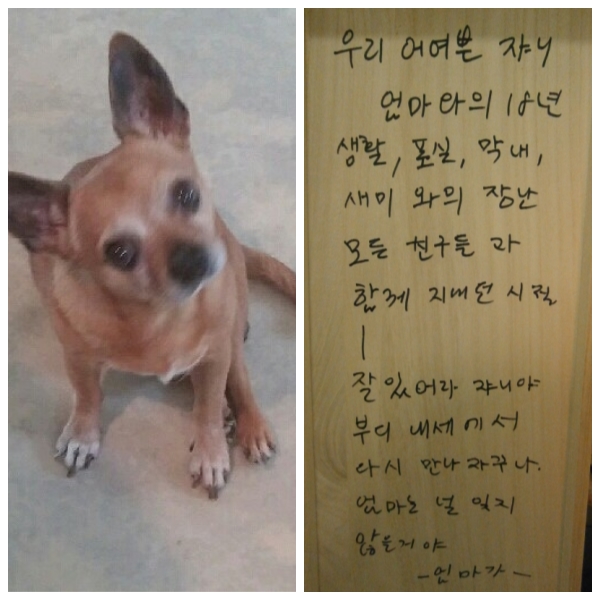 우리 어여쁜 쟈니
엄마와의 18년
생활, 포실, 막내,
새미 와의 장난
모든 친구들 과
함께 지내던 시절
잘있어라 쟈니야
부디 내세에서
다시 만나 자꾸나.
엄마는 널 잊지
않을거야
-엄마가-